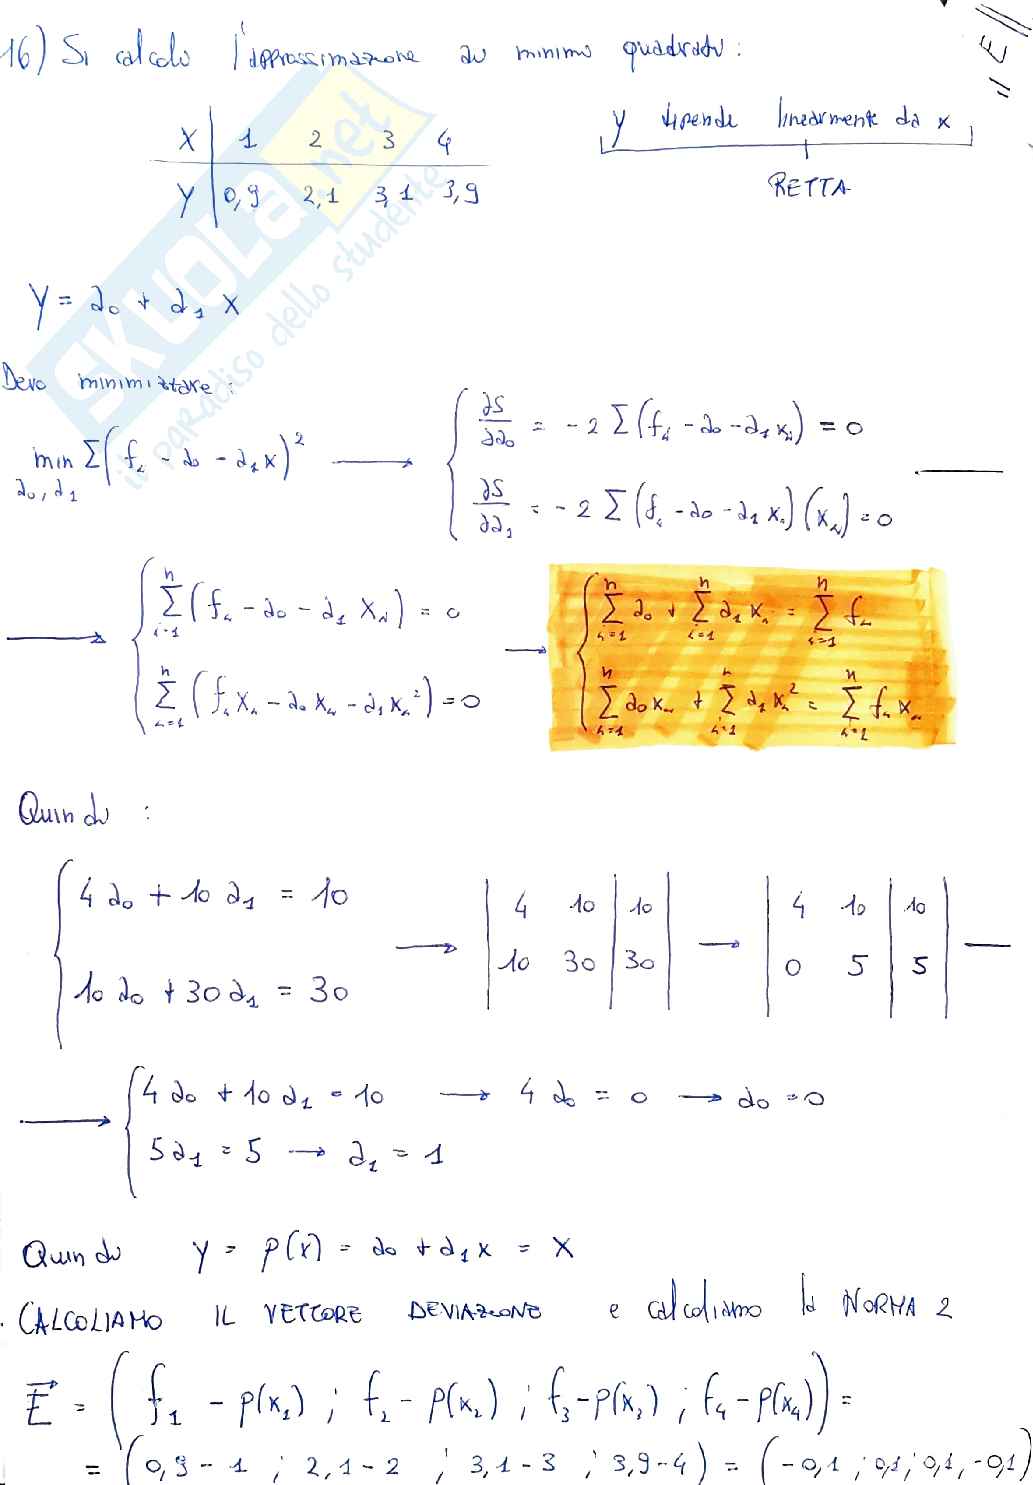 16) Si calcoli l'approssimazione ai minimi quadrati :
"E"
X | 1 2 3 4
Y | 0,9 2,1 3,1 3,9
y dipende linearmente da x
RETTA
Y = a₀ + a₁ x
Devo minimizzare :
min Σ(fᵢ - a₀ - a₁x)² →
a₀, a₁
∂S/∂a₀ = -2 Σ(fᵢ - a₀ - a₁xᵢ) = 0
∂S/∂a₁ = -2 Σ(fᵢ - a₀ - a₁xᵢ)(xᵢ) = 0
→ { Σⁿᵢ₌₁ (fᵢ - a₀ - a₁xᵢ) = 0
Σⁿᵢ₌₁ (fᵢxᵢ - a₀xᵢ - a₁xᵢ²) = 0
→ { Σⁿᵢ₌₁ a₀ + Σⁿᵢ₌₁ a₁xᵢ = Σⁿᵢ₌₁ fᵢ
Σⁿᵢ₌₁ a₀xᵢ + Σⁿᵢ₌₁ a₁xᵢ² = Σⁿᵢ₌₁ fᵢxᵢ
Quindi :
{ 4a₀ + 10a₁ = 10 → | 4 10 | 10 | → | 4 10 | 10 | —
10a₀ + 30a₁ = 30 | 10 30 | 30 | | 0 5 | 5 |
→ { 4a₀ + 10a₁ = 10 → 4a₀ = 0 → a₀ = 0
5a₁ = 5 → a₁ = 1
Quindi y = p(x) = a₀ + a₁x = x
CALCOLIAMO IL VETTORE DEVIAZIONE e calcoliamo la NORMA 2
E = (f₁ - p(x₁) ; f₂ - p(x₂) ; f₃ - p(x₃) ; f₄ - p(x₄)) =
= (0,9 - 1 ; 2,1 - 2 ; 3,1 - 3 ; 3,9 - 4) = (-0,1 ; 0,1 ; 0,1 ; -0,1)
SKUOLA.net
il paradiso dello studente